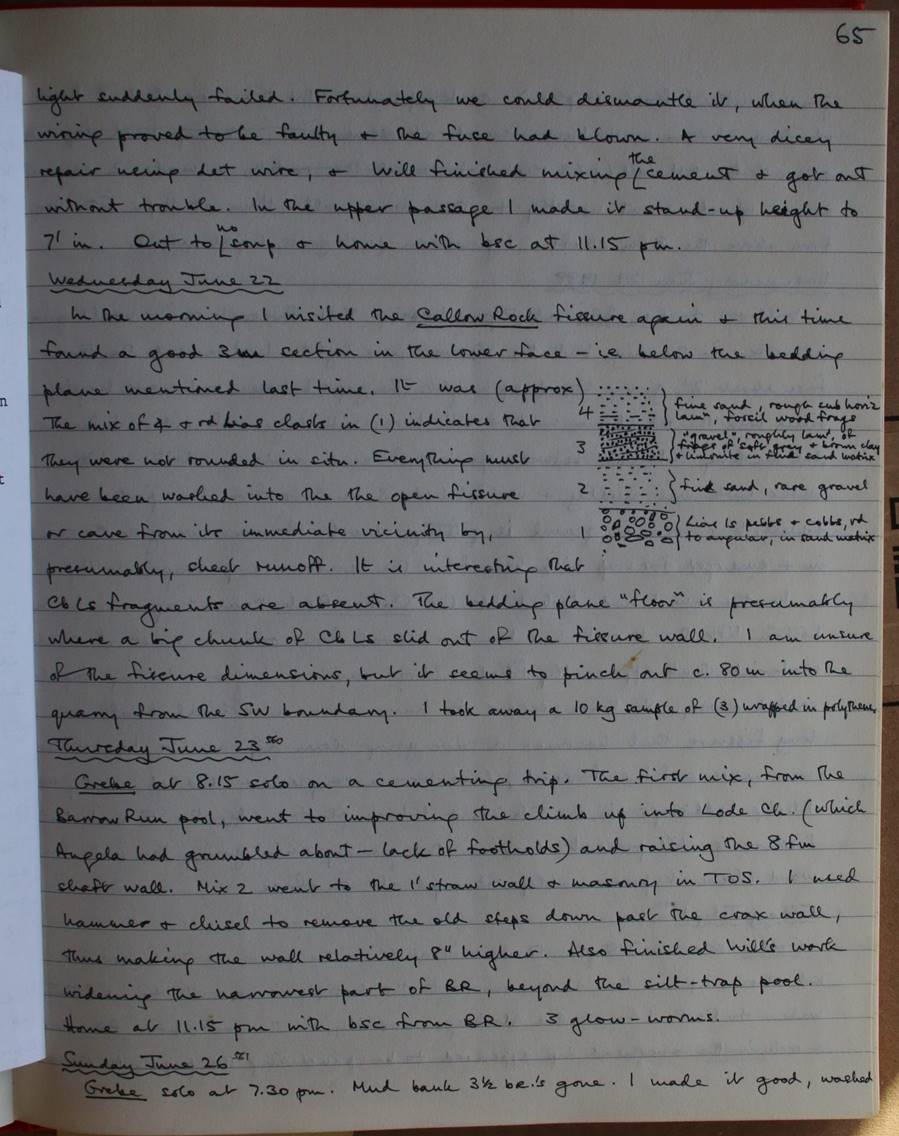 65
light suddenly failed. Fortunately we could dismantle it, when the
wiring proved to be faulty + the fuse had blown. A very dicey
repair using det wire, + Will finished mixing the cement + got out
without trouble. In the upper passage I made it stand-up height to
7' in. Out to no soup + home with bsc at 11.15 pm.
Wednesday June 22
In the morning I visited the Callow Rock fissure again + this time
found a good 3m section in the lower face – ie. below the bedding
plane mentioned last time. It was (approx)
4 fine sand, rough sub horiz
lamn, fossil wood frags
3 "gravel", roughly lamd, of
frags of soft grey + brown clay
+ limonite in fine sand matrix
2 fine sand, rare gravel
1 Lias ls pebbs + cobbs, rd
to angular, in sand matrix
The mix of 4 + rd Lias clasts in (1) indicates that
they were not rounded in situ. Everything must
have been washed into the the open fissure
or cave from its immediate vicinity by,
presumably, sheet runoff. It is interesting that
Cb Ls fragments are absent. The bedding plane "floor" is presumably
where a big chunk of Cb Ls slid out of the fissure wall. I am unsure
of the fissure dimensions, but it seems to pinch out c. 80 m into the
quarry from the SW boundary. I took away a 10 kg sample of (3) wrapped in polythene.
Thursday June 23
Grebe at 8.15 solo on a cementing trip. The first mix, from the
Barrow Run pool, went to improving the climb up into Lode Ch. (which
Angela had grumbled about – lack of footholds) and raising the 8 fm
shaft wall. Mix 2 went to the 1' straw wall + masonry in TOS. I used
hammer + chisel to remove the old steps down past the crax wall,
thus making the wall relatively 8" higher. Also finished Will's work
widening the narrowest part of BR, beyond the silt-trap pool.
Home at 11.15 pm with bsc from BR. 3 glow-worms.
Sunday June 26
Grebe solo at 7.30 pm. Mud bank 3½ be.'s gone. I made it good, washed